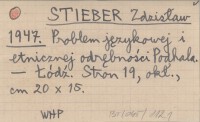 STIEBER Zdzisław
1947. Problem językowej i
etnicznej odrębności Podhala.
— Łódź. Stron 19, okł.,
cm 20 x 15.
WHP